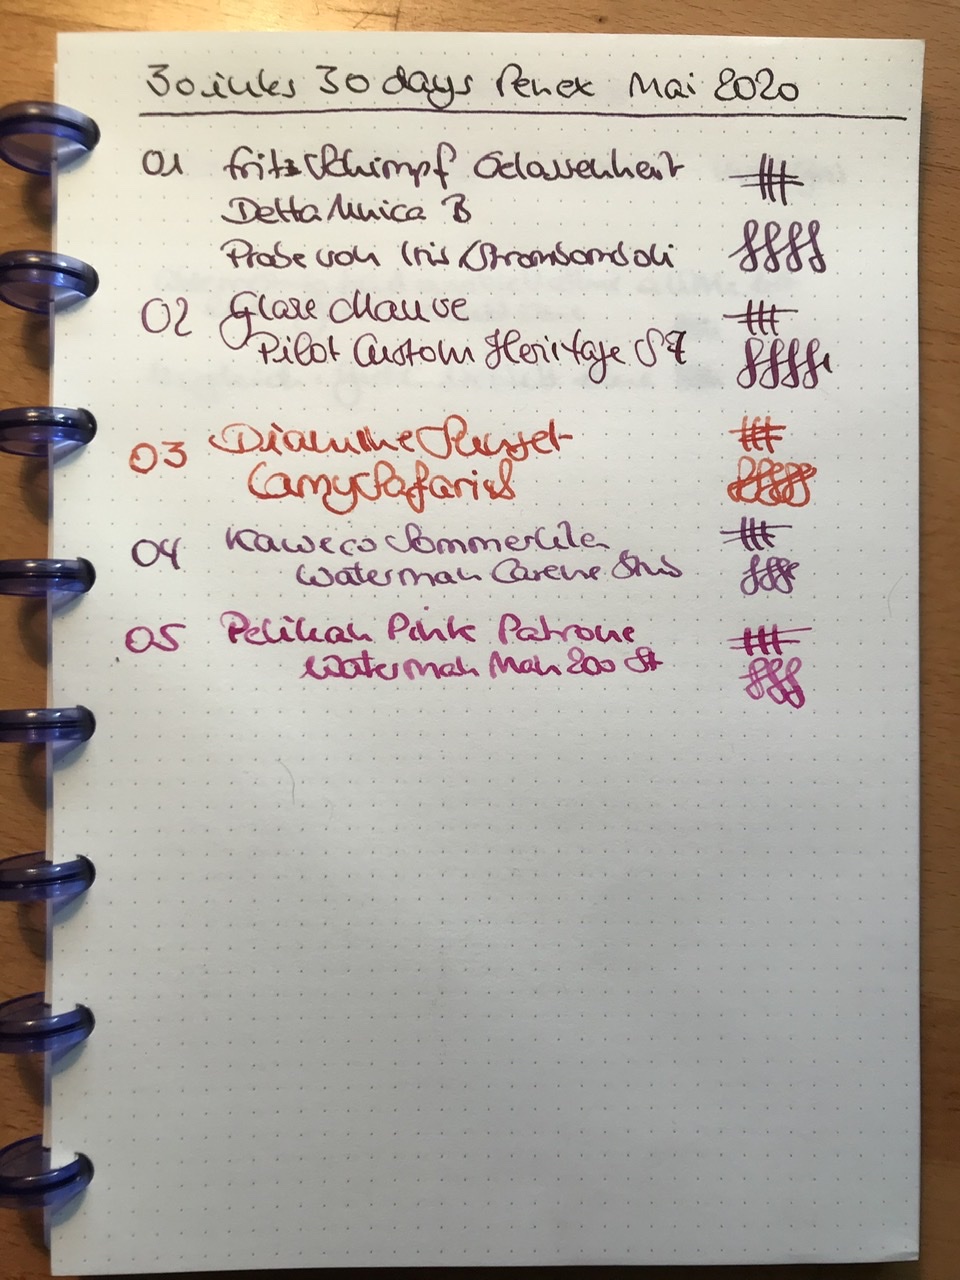 30 inks 30 days Penex Mai 2020
01 Fritz Schimpf Gelassenheit
Delta Unica B
Probe von Iris Strombomboli
02 Glase Mauve
Pilot Custom Heritage SF
03 Diamine Sunset
Lamy Safari
04 Kaweco Sommerlila
Waterman Carene Stub
05 Pelikan Pink Patrone
Waterman Man 200 St